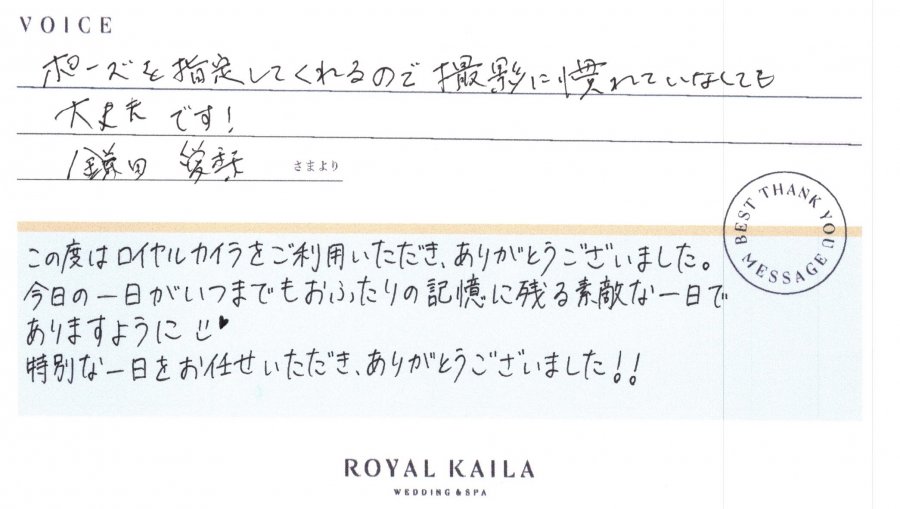 VOICE
ポーズを指定してくれるので撮影に慣れていなくても
大丈夫です!
鎌田 さまより
BEST THANK YOU MESSAGE
この度はロイヤルカイラをご利用いただき、ありがとうございました。
今日の一日がいつまでもおふたりの記憶に残る素敵な一日で
ありますように
特別な一日をお任せいただき、ありがとうございました!!
ROYAL KAILA
WEDDING & SPA